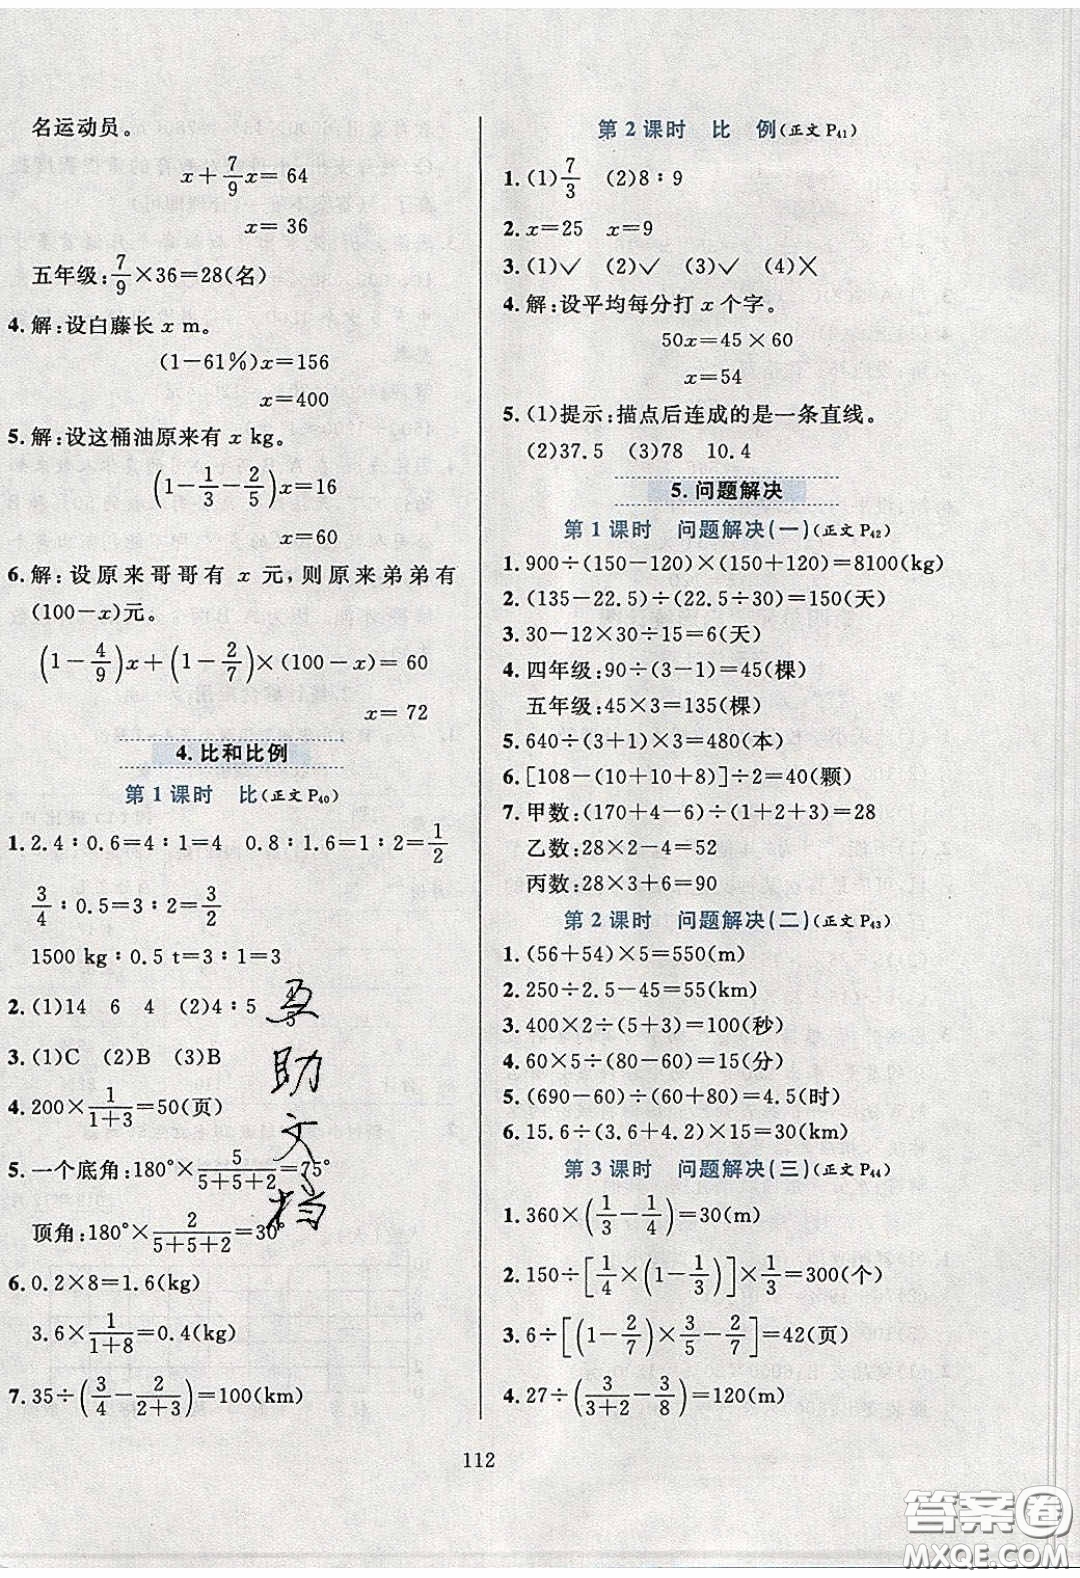 名运动员。
x+7/9x=64
x=36
五年级:7/9×36=28(名)
4.解:设白藤长 x m。
(1-61%)x=156
x=400
5.解:设这桶油原来有 x kg。
(1-1/3-2/5)x=16
x=60
6.解:设原来哥哥有 x 元,则原来弟弟有
(100-x)元。
(1-4/9)x+(1-2/7)×(100-x)=60
x=72
4.比和比例
第1课时 比(正文P40)
1.2.4∶0.6=4∶1=4 0.8∶1.6=1∶2=1/2
3/4∶0.5=3∶2=3/2
1500 kg∶0.5 t=3∶1=3
2.(1)14 6 4 (2)4∶5 4/5
3.(1)C (2)B (3)B
4.200×1/(1+3)=50(页)
5.一个底角:180°×5/(5+5+2)=75°
顶角:180°×2/(5+5+2)=30°
6.0.2×8=1.6(kg)
3.6×1/(1+8)=0.4(kg)
7.35÷(3/4-2/(2+3))=100(km)
互
助
文
档
第2课时 比 例(正文P41)
1.(1)7/3 (2)8∶9
2.x=25 x=9
3.(1)✓ (2)✓ (3)✓ (4)✕
4.解:设平均每分打 x 个字。
50x=45×60
x=54
5.(1)提示:描点后连成的是一条直线。
(2)37.5 (3)78 10.4
5.问题解决
第1课时 问题解决(一)(正文P42)
1.900÷(150-120)×(150+120)=8100(kg)
2.(135-22.5)÷(22.5÷30)=150(天)
3.30-12×30÷15=6(天)
4.四年级:90÷(3-1)=45(棵)
五年级:45×3=135(棵)
5.640÷(3+1)×3=480(本)
6.[108-(10+10+8)]÷2=40(颗)
7.甲数:(170+4-6)÷(1+2+3)=28
乙数:28×2-4=52
丙数:28×3+6=90
第2课时 问题解决(二)(正文P43)
1.(56+54)×5=550(m)
2.250÷2.5-45=55(km)
3.400×2÷(5+3)=100(秒)
4.60×5÷(80-60)=15(分)
5.(690-60)÷(60+80)=4.5(时)
6.15.6÷(3.6+4.2)×15=30(km)
第3课时 问题解决(三)(正文P44)
1.360×(1/3-1/4)=30(m)
2.150÷[1/4×(1-1/3)]×1/3=300(个)
3.6÷[(1-2/7)×3/5-2/7]=42(页)
4.27÷(3/(3+2)-3/8)=120(m)
112
答案圈
MXQE.COM